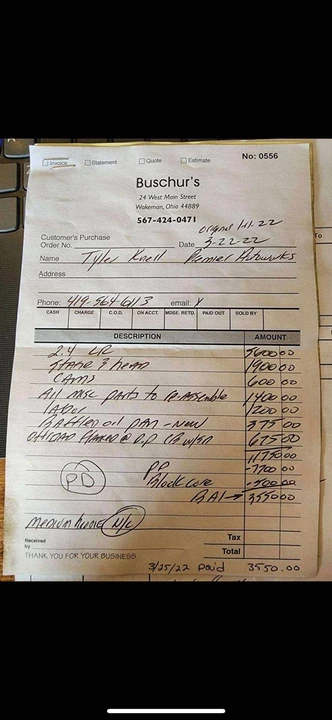 Invoice Statement Quote Estimate No: 0556
Buschur's
24 West Main Street
Wakeman, Ohio 44889
567-424-0471
Customer's Purchase
Order No. Date 3-22-22
Name Tyler Knell Premier Autoworks
Address
Phone: 419.564.6113 email: Y
CASH CHARGE C.O.D. ON ACCT. MDSE. RETD. PAID OUT SOLD BY
DESCRIPTION AMOUNT
2.4 LR 5600 00
1900 00
Cams 600 00
All misc parts to Re-assemble 1400 00
Labor 1200 00
Baffled oil pan - new 375 00
675 00
11750 00
PP -7700 00
PD Block core -500 00
BAL → 3550 00
N/C
Received
by
Tax
Total
THANK YOU FOR YOUR BUSINESS
3/25/22 paid 3550.00